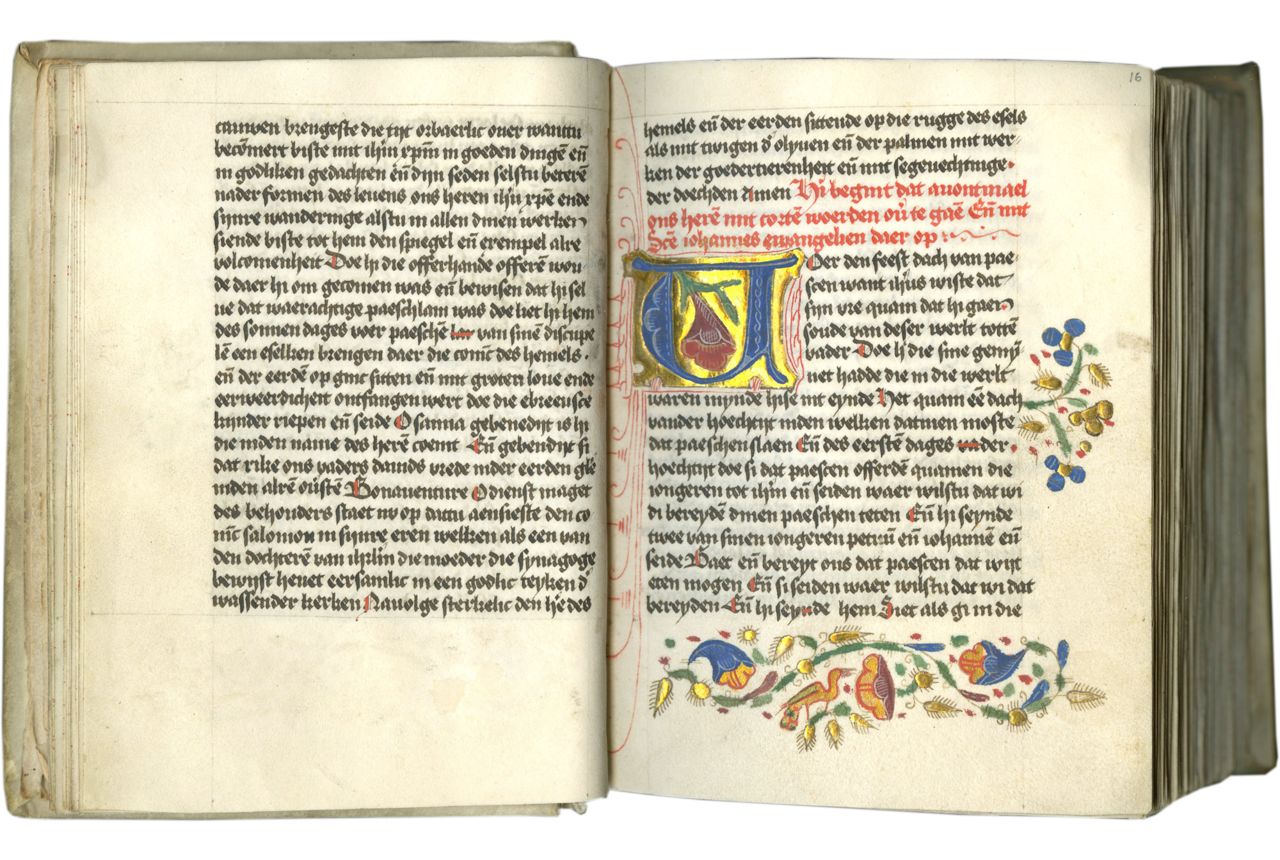 rauwen brengeste die tijt orbaerlic ouer wantu
becōmert biste mit ihū xpm̄ in goeden dingē eñ
in godliken gedachten eñ dijn seden selstu beterē
nader formen des leuens ons heren ihū xpē ende
sijnre wanderinge alstu in allen dinen werken
siende biste tot hem den spiegel eñ exempel alre
volcomenheit Doe hi die offerhande offerē wou-
de daer hi om gecomen was eñ bewisen dat hi sel
ue dat waerachtige paeschlam was doe liet hi hem
des sonnen dages voer paeschē van sinē discipe
lē een eselken brengen daer die coninc des hemels
eñ der eerdē op ginc sitten eñ mit groten loue ende
eerweerdicheit ontfangen wert doe die ebreeusce
kinder riepen eñ seide Osanna gebenedijt is hi
die inden name des herē coemt Eñ gebendijt si
dat rike ons vaders dauids vrede inder eerden glē
inden alrē oustē Bonauenture O dienst maget
des behouders staet nv op dattu aensieste den co
nīc salomon in sijnre eren welken als een van
den dochterē van ihrlm̄ die moeder die synagoge
bewijst heuet eersamlic in een godlic teyken đ
wassender kerken Nauolge sterkelic den hē des
16
hemels eñ der eerden sittende op die rugge des esels
als mit twigen đ olyuen eñ der palmen mit wer-
ken der goedertierenheit eñ mit segeuechtinge
der doechden amen Hi begint dat auontmael
ons herē mit cortē woerden ou te gaē Eñ mit
Scē iohannes ewangelien daer op
Voer den feest dach van pae-
scen want ihūs wiste dat
sijn vre quam dat hi gaen
soude van deser werlt totten
vader Doe hi die sine gemij
net hadde die in die werlt
waren mynde hise int eynde Het quam eē dach
vander hoechtijt inden welken datmen moste
dat paeschen slaen Eñ des eerstē dages der
hoechtijt doe si dat paescen offerdē quamen die
iongeren tot ihm̄ eñ seiden waer wilstu dat wi
di bereydē dinen paeschen teten Eñ hi seynde
twee van sinen iongeren petrū eñ iohannē eñ
seide Gaet eñ bereyt ons dat paescen dat wijt
eten mogen Eñ si seiden waer wilstu dat wi dat
bereyden Eñ hi seynde hem Siet als gi in die